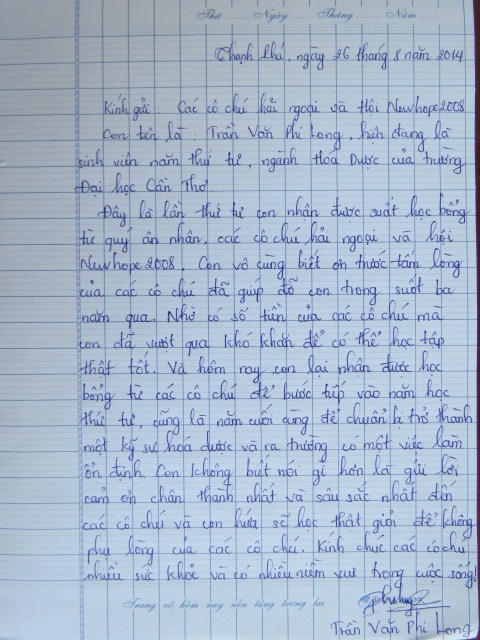 Thứ ...... Ngày ...... Tháng ...... Năm ......
Thạnh Phú, ngày 26 tháng 8 năm 2014
Kính gửi: Các cô chú hải ngoại và Hội Newhope2008
Con tên là: Trần Văn Phi Long, hiện đang là
sinh viên năm thứ tư, ngành Hoá Dược của trường
Đại học Cần Thơ.
Đây là lần thứ tư con nhận được suất học bổng
từ quý ân nhân, các cô chú hải ngoại và hội
Newhope2008. Con vô cùng biết ơn trước tấm lòng
của các cô chú đã giúp đỡ con trong suốt ba
năm qua. Nhờ có số tiền của các cô chú mà
con đã vượt qua khó khăn để có thể học tập
thật tốt. Và hôm nay con lại nhận được học
bổng từ các cô chú để bước tiếp vào năm học
thứ tư, cũng là năm cuối cùng để chuẩn bị trở thành
một kỹ sư hoá dược và ra trường có một việc làm
ổn định. Con không biết nói gì hơn là gửi lời
cảm ơn chân thành nhất và sâu sắc nhất đến
các cô chú và con hứa sẽ học thật giỏi để không
phụ lòng của các cô chú. Kính chúc các cô chú
nhiều sức khoẻ và có nhiều niềm vui trong cuộc sống!
Trang vở hôm nay nền tảng tương lai
Trần Văn Phi Long